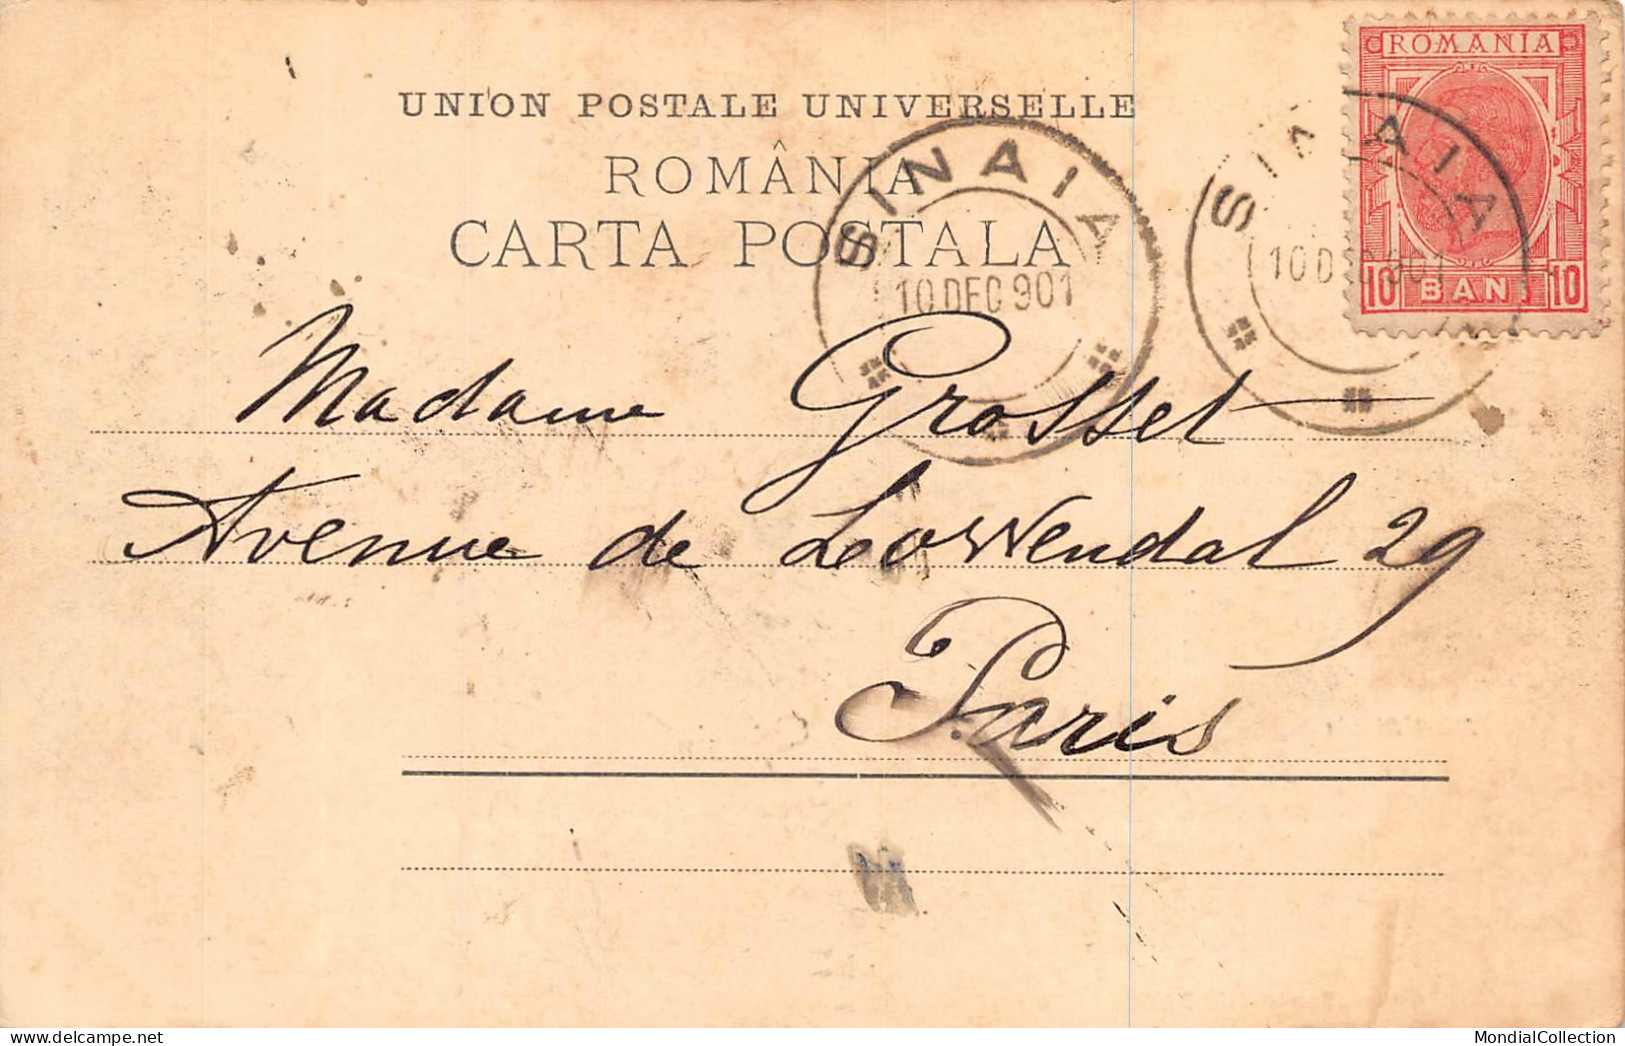 ROMANIA
10 BANI 10
UNION POSTALE UNIVERSELLE
ROMÂNIA
CARTA POSTALA
SINAIA
10 DEC 901
SINAIA
10 DEC 901
Madame Grosset
Avenue de Lowendal 29
Paris
MondialCollection